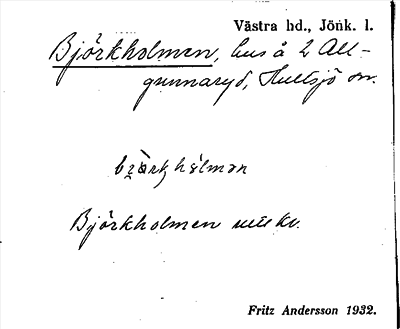 Västra hd., Jönk. l.
Björkholmen, hus å 2 All-
gunnaryd, Hultsjö sn.
Björkholmen
Fritz Andersson 1932.